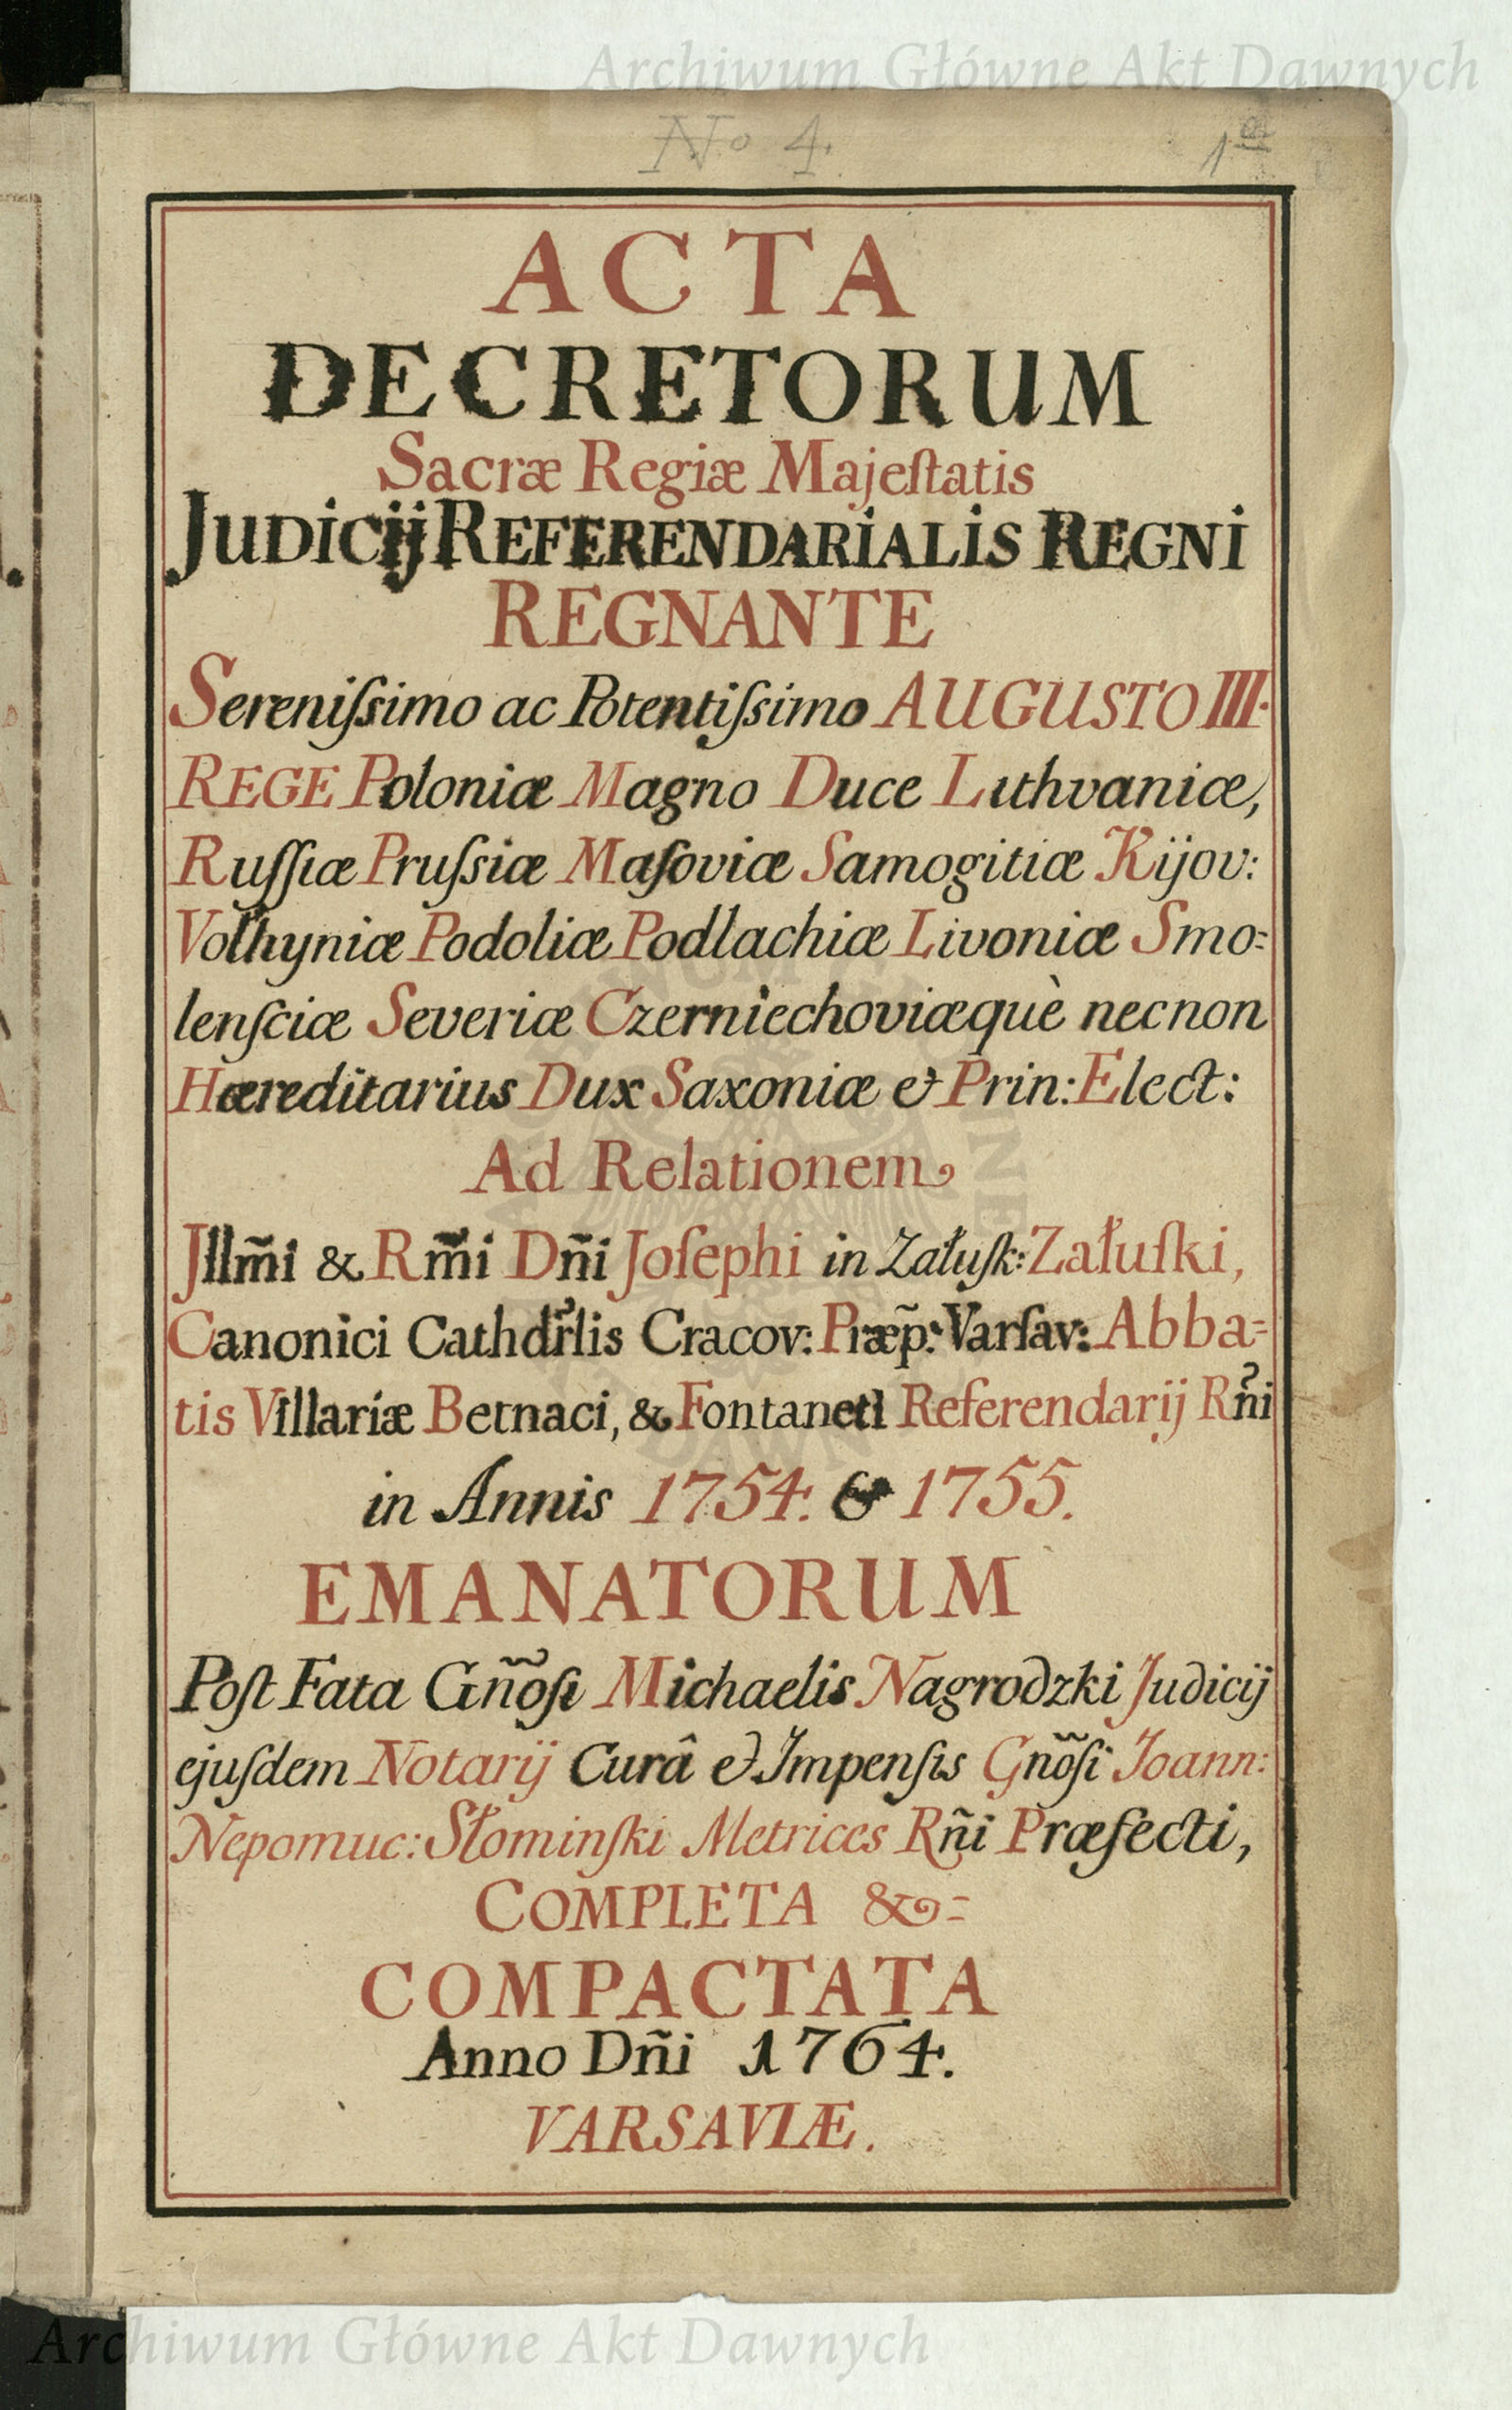 Archiwum Główne Akt Dawnych
No 4.
1
ACTA
DECRETORUM
Sacræ Regiæ Majeſtatis
Judicij Referendarialis Regni
REGNANTE
Sereniſsimo ac Potentiſsimo AUGUSTO III.
REGE Poloniæ Magno Duce Lithvaniæ,
Ruſſiæ Pruſsiæ Maſoviæ Samogitiæ Kijov:
Volhyniæ Podoliæ Podlachiæ Livoniæ Smo=
lenſciæ Severiæ Czerniechoviæquè necnon
Hæreditarius Dux Saxoniæ & Prin: Elect:
Ad Relationem
Jllm̃i & Rm̃i Dñi Joſephi in Załuſk: Załuſki,
Canonici Cathdr̃lis Cracov: Præp̃: Varſav: Abba=
tis Villariæ Betnaci, & Fontaneti Referendarij Rñi
in Annis 1754. & 1755.
EMANATORUM
Poſt Fata Gñõſi Michaelis Nagrodzki Judicij
ejuſdem Notarij Curâ & Jmpenſis Gñõſi Joann:
Nepomuc: Słominſki Metrices Rñi Præfecti,
COMPLETA &=
COMPACTATA
Anno Dñi 1764.
VARSAVIÆ.
Archiwum Główne Akt Dawnych